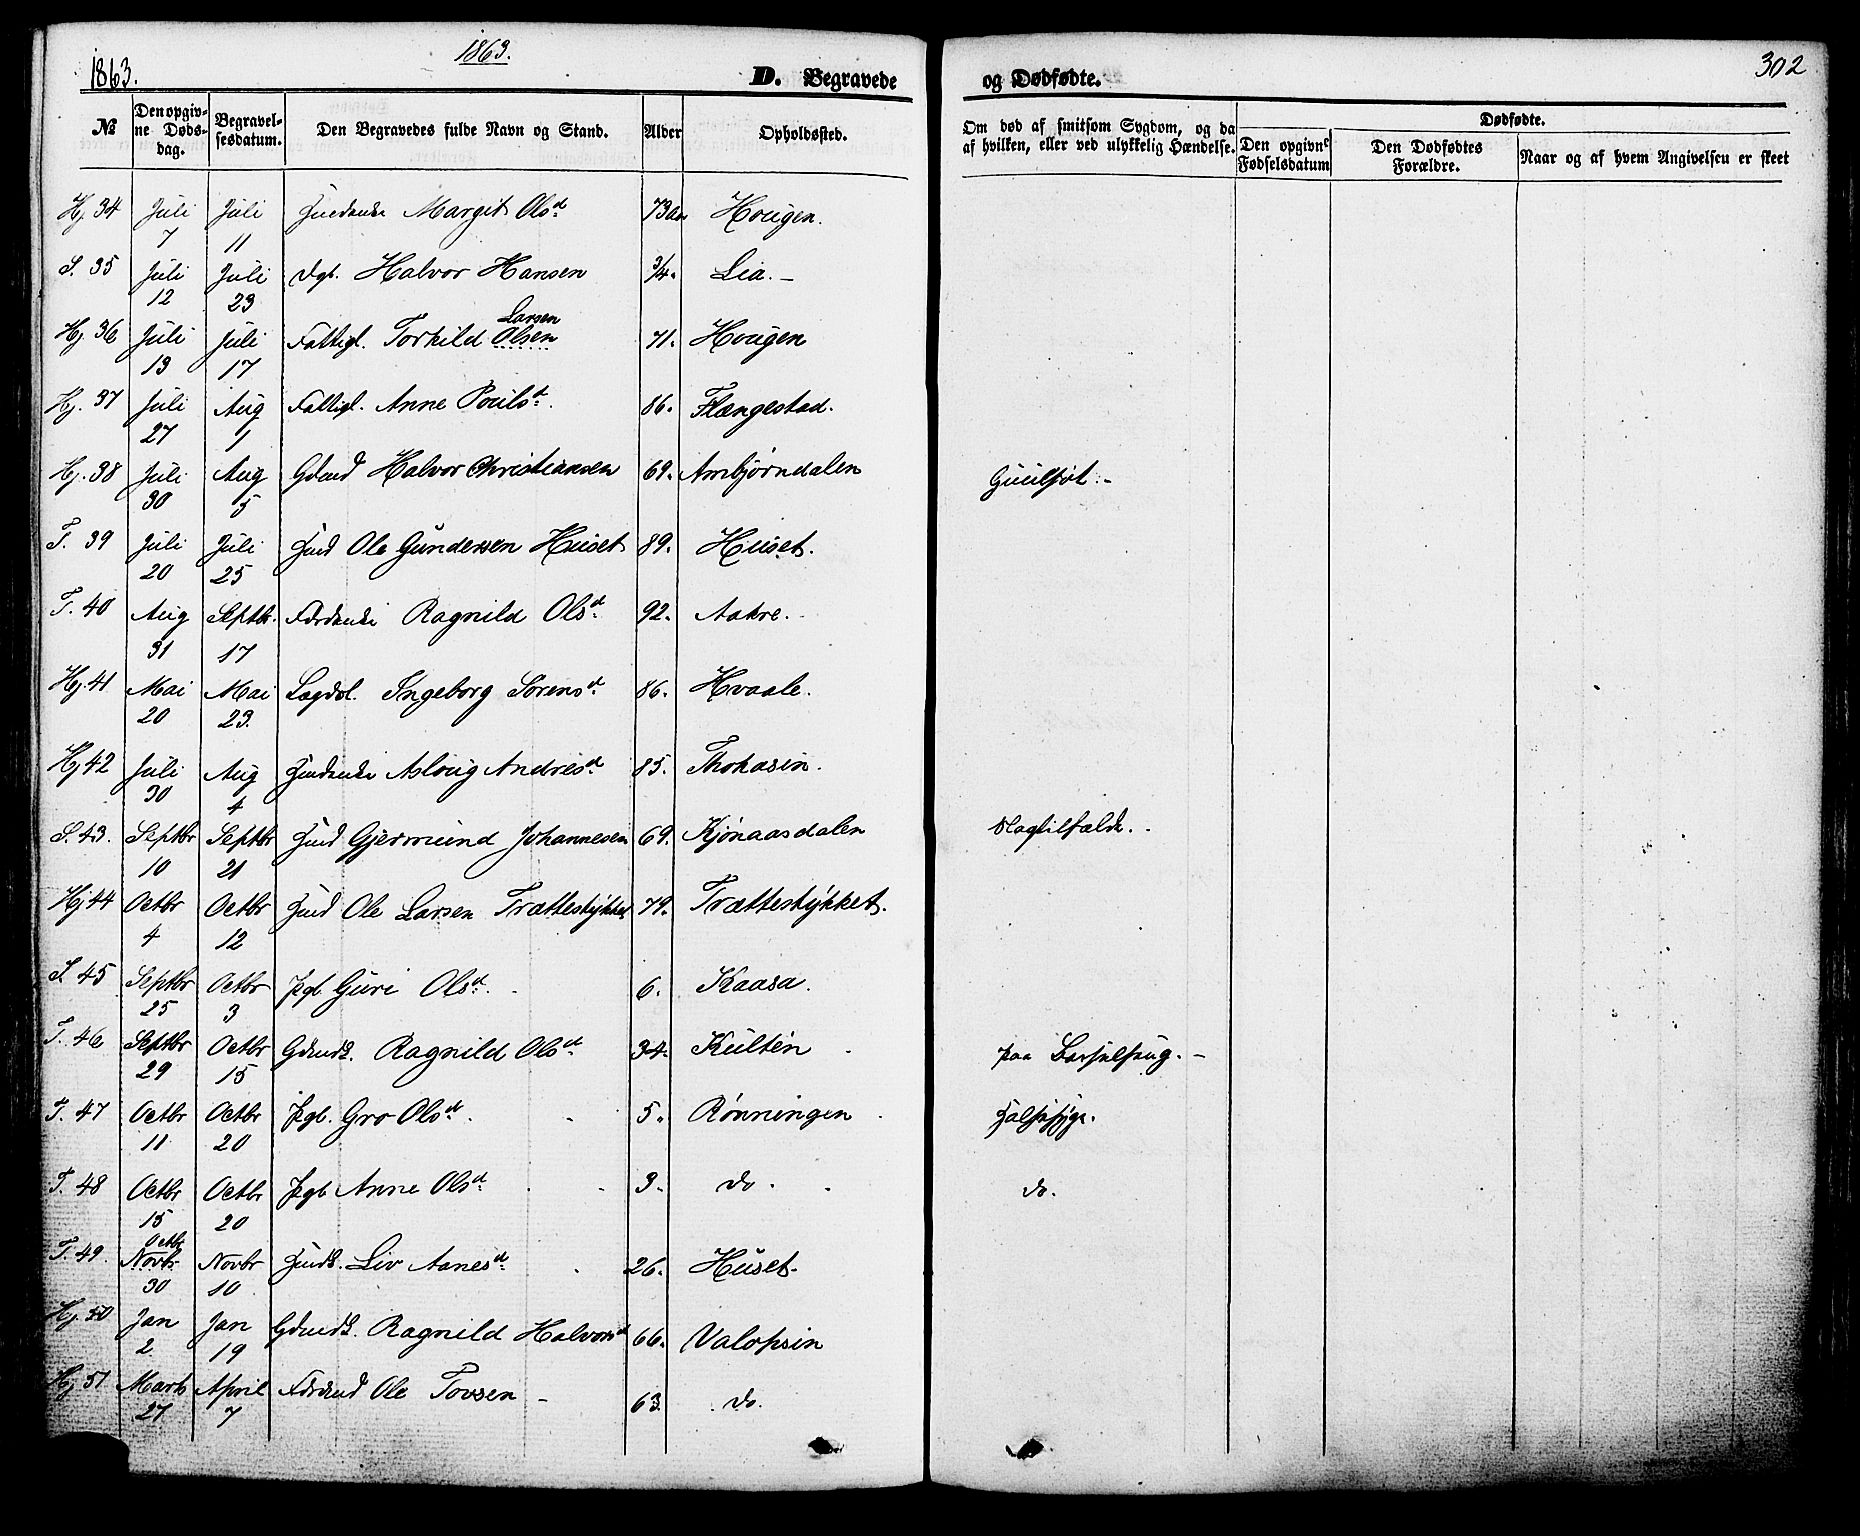 1863.
1863.
D. Begravede
og Dødfødte.
302
№ Den opgivne Dødsdag. Begravelsesdatum. Den Begravedes fulde Navn og Stand. Alder Opholdssted. Om død af smitsom Sygdom, og da af hvilken, eller ved ulykkelig Hændelse. Dødfødte. Den opgivne Fødselsdatum Den Dødfødtes Forældre. Naar og af hvem Angivelsen er skeet
Hj. 34 Juli 7 Juli 11 Margit Olsd 73 Aar Hougen.
S. 35 Juli 12 Juli 23 Halvor Hansen 3/4. Lia. –
Larsen
Hj. 36 Juli 13 Juli 17 Fattigl. Torkild Olsen 71. Hougen
Hj. 37 Juli 27 Aug 1 Fattigl. Anne Poulsd. 86. Flængestad.
Hj. 38 Juli 30 Aug 5 Gdmd Halvor Christiansen 69. Ambjørndalen Guulsot. –
T. 39 Juli 20 Juli 25 Huusmd Ole Gundersen Huset 89. Huset.
T. 40 Aug 31 Septbr. 17 Ragnild Olsd. 92. Aakre.
Hj. 41 Mai 20 Mai 23. Lægdsl. Ingeborg Sørensd. 86. Hvaale.
Hj 42 Juli 30 Aug 4 Aslaug Andresd. 85. Thokasin.
S. 43. Septbr 10 Septbr 21 Gjermund Johannesen 69. Kjønaasdalen Slagtilfælde.
Hj 44 Octbr 4 Octbr 12 Ole Larsen Trættestykket 79. Trættestykket.
S. 45 Septbr 25 Octbr 3 Pgb Guri Olsd. 6. Kaasa.
T. 46 Septbr 29 Octbr 15 Ragnild Olsd. 34. Kulten paa Barselseng. –
T. 47 Octbr 11 Octbr 20 Pgb. Gro Olsd. 5. Rønningen Halssyge.
T. 48 Octbr 15 Octbr 20 Pgb Anne Olsd. 3. do. do.
Octbr
T. 49. Novbr 30 Novbr 10 Liv Aanesd. 26. Huset.
Hj. 50 Jan 2. Jan 19 Ragnild Halvorsd 66. Valopsin
Hj 51 Marts 27 April 7 Ole Tovsen – 63. do.